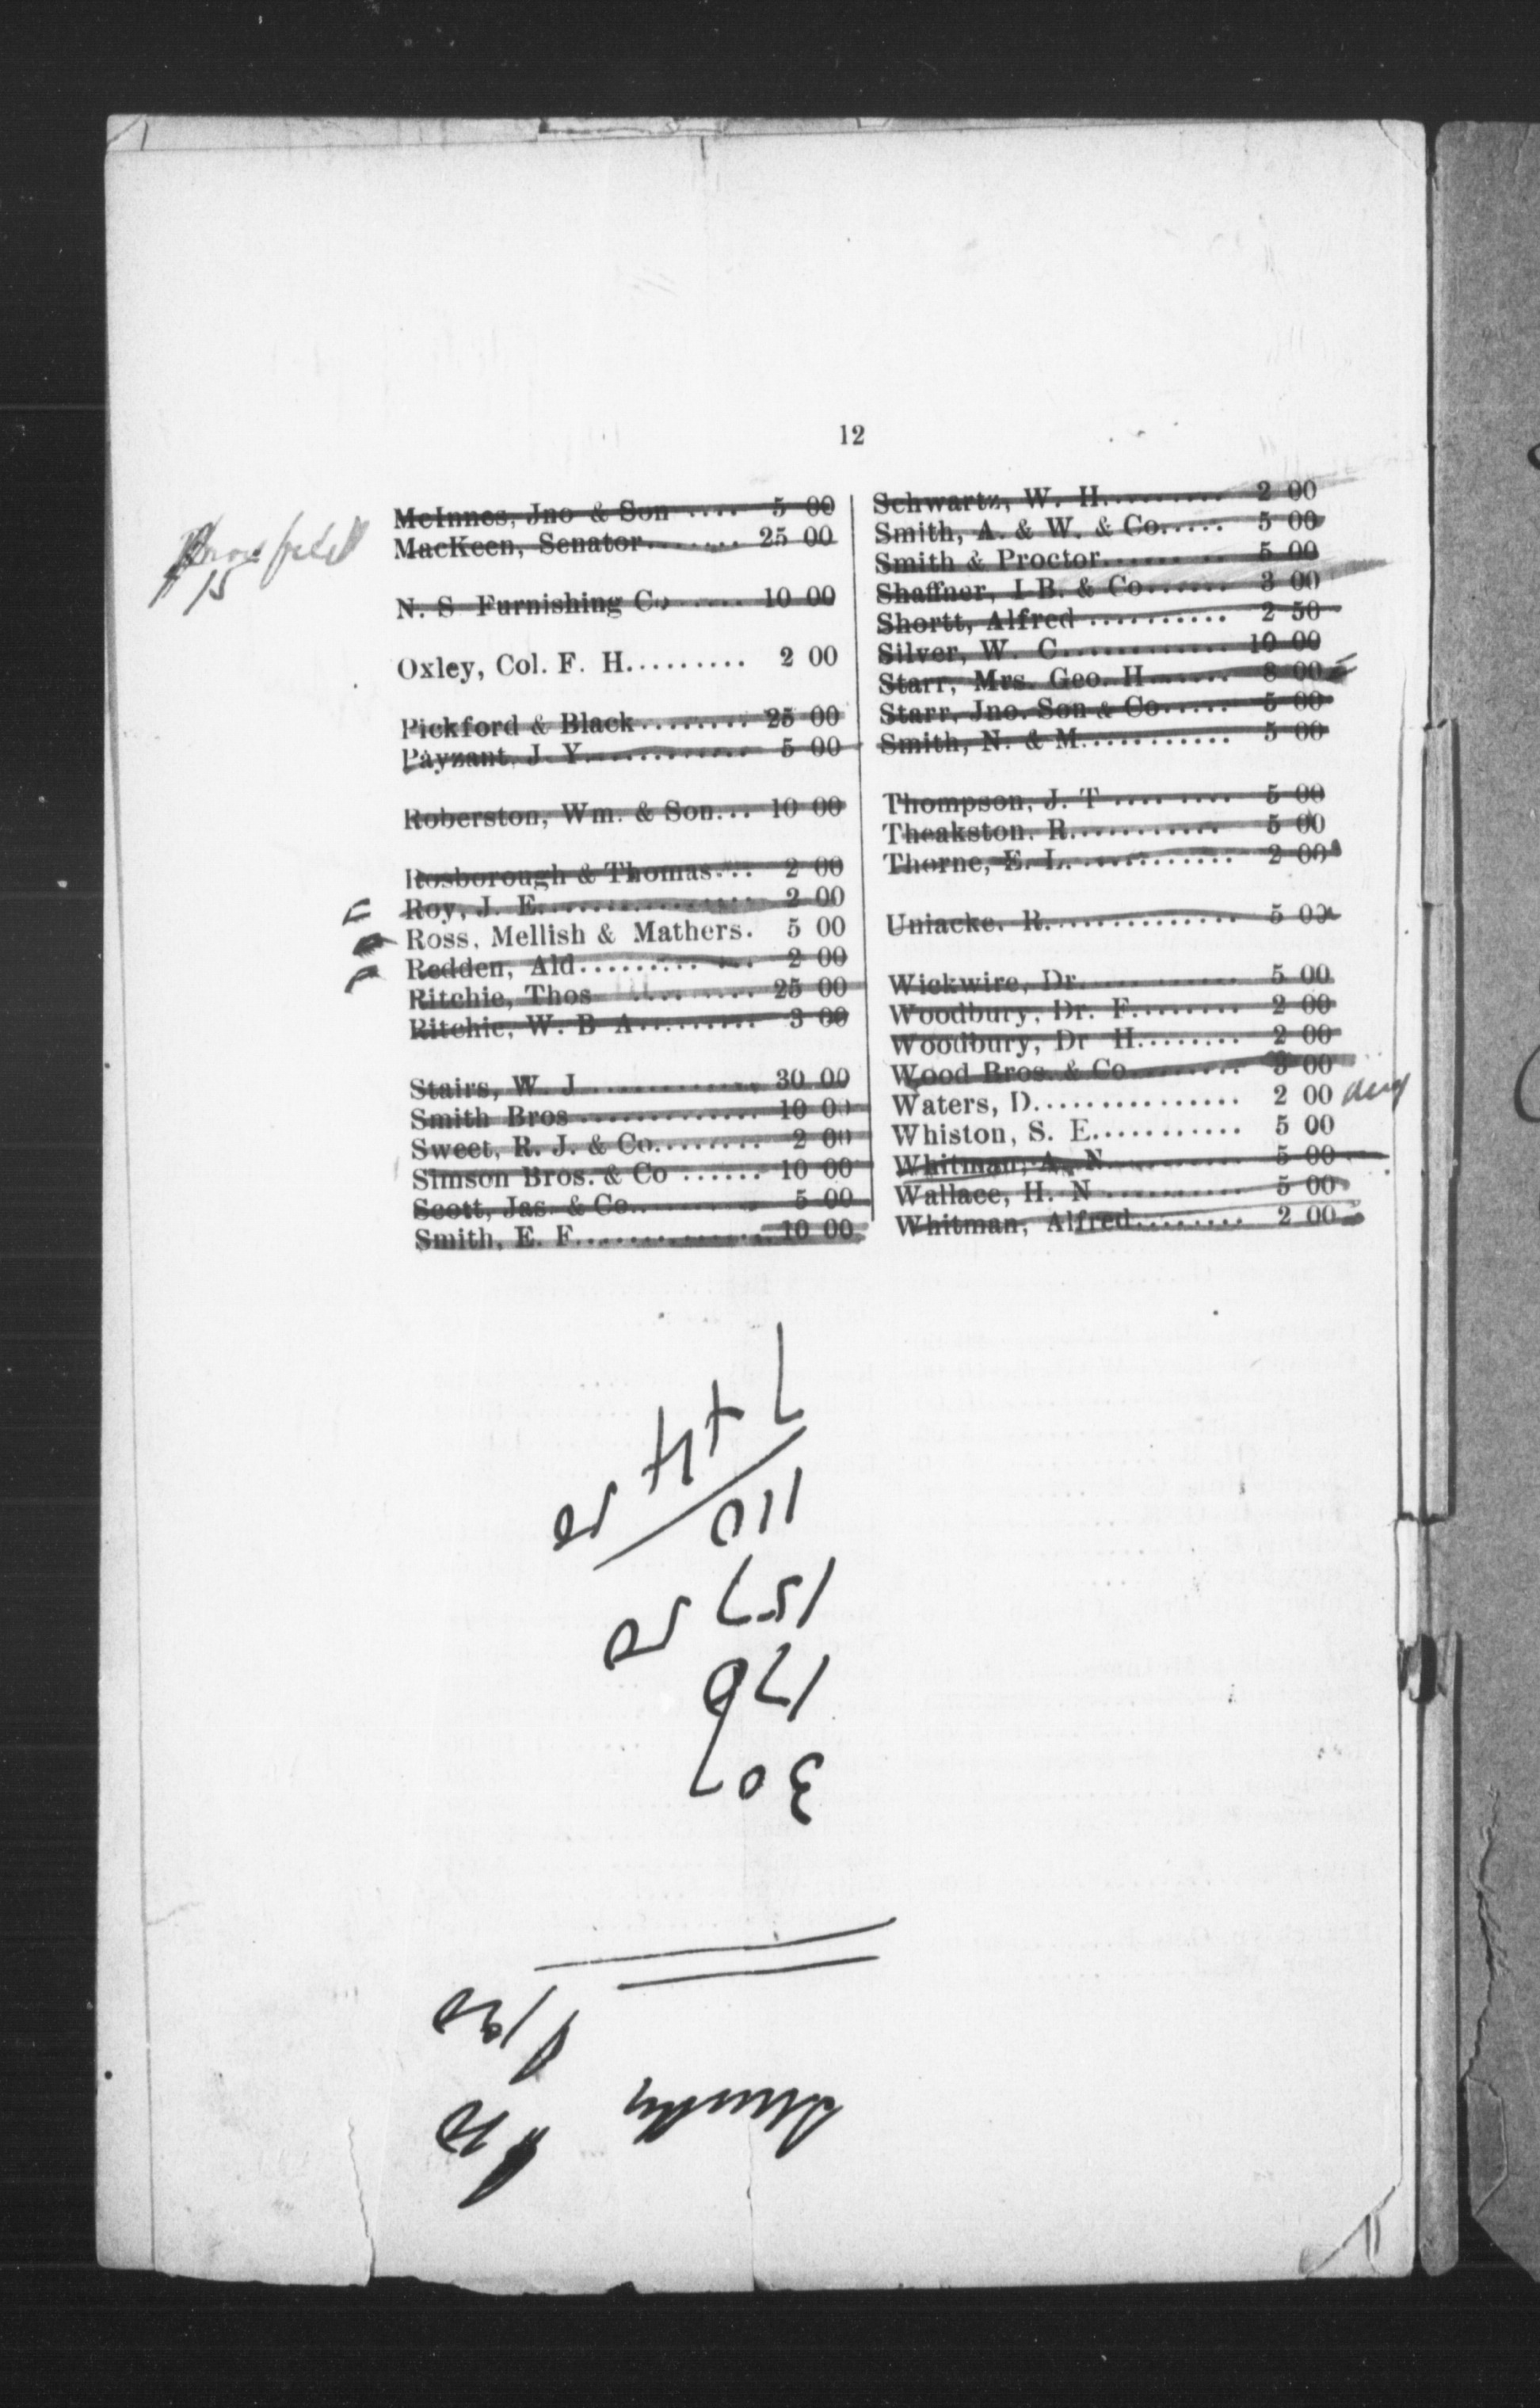 12
McInnes, Jno & Son .... 5 00
MacKeen, Senator........ 25 00
15
N. S Furnishing Co ...... 10 00
Oxley, Col. F. H......... 2 00
Pickford & Black......... 25 00
Payzant, J. Y............ 5 00
Roberston, Wm. & Son... 10 00
Rosborough & Thomas... 2 00
Roy, J. E................ 2 00
Ross, Mellish & Mathers. 5 00
Redden, Ald............. 2 00
Ritchie, Thos ......... 25 00
Ritchie, W. B A......... 3 00
Stairs, W. J ............. 30 00
Smith Bros .............. 10 00
Sweet, R. J. & Co........ 2 00
Simson Bros. & Co ...... 10 00
Scott, Jas. & Co.......... 5 00
Smith, E. F.............. 10 00
Schwartz, W. H......... 2 00
Smith, A. & W. & Co..... 5 00
Smith & Proctor......... 5 00
Shaffner, I B. & Co...... 3 00
Shortt, Alfred .......... 2 50
Silver, W. C............. 10 00
Starr, Mrs. Geo. H...... 8 00
Starr, Jno. Son & Co..... 5 00
Smith, N. & M........... 5 00
Thompson, J. T ......... 5 00
Theakston, R........... 5 00
Thorne, E. L............ 2 00
Uniacke, R.............. 5 00
Wickwire, Dr............ 5 00
Woodbury, Dr. F........ 2 00
Woodbury, Dr H........ 2 00
Wood Bros. & Co........ 3 00
Waters, D............... 2 00
Whiston, S. E........... 5 00
Whitman, A. N.......... 5 00
Wallace, H. N .......... 5 00
Whitman, Alfred........ 2 00
307
170
157 50
110